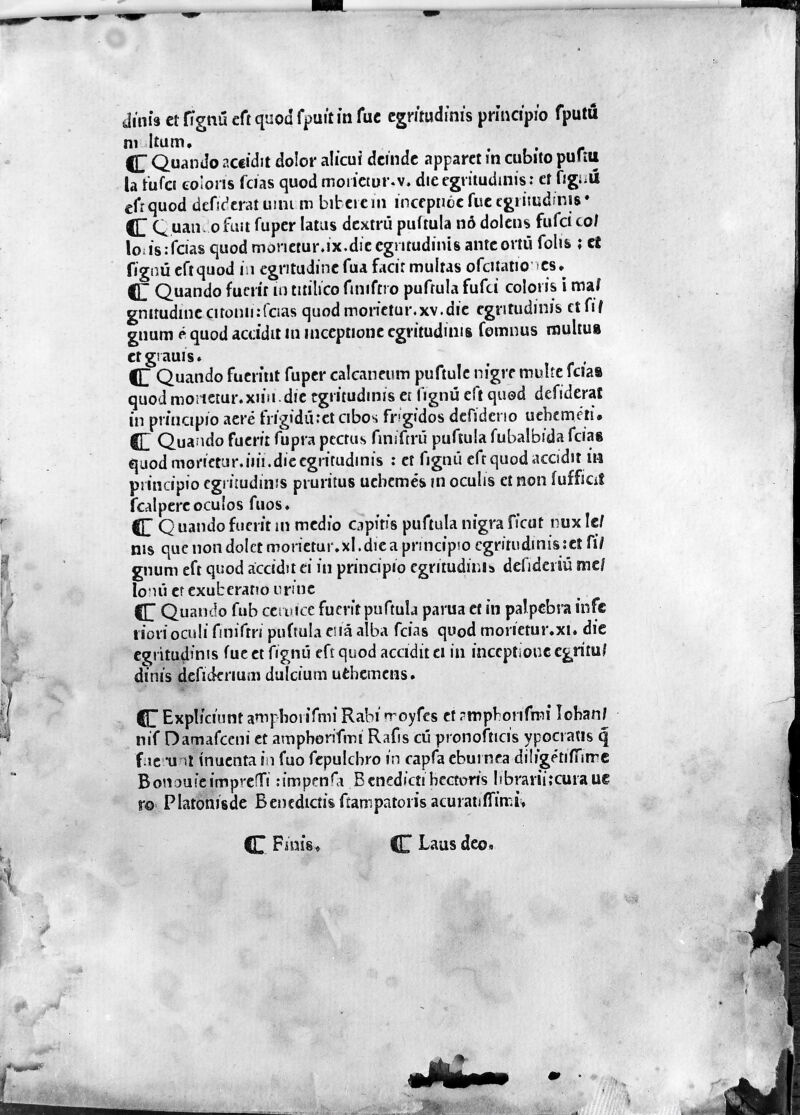 dinis et ſignū eſt quod ſpuit in ſue egritudinis principio ſputū
multum.
⸿ Quando accidit dolor alicui deinde apparet in cubito puſtu
la fuſci coloris ſcias quod morietur.v. die egritudinis: et ſignū
eſt quod deſiderat uinum bibere in inceptiōe ſue egritudinis.
⸿ Quando fuit ſuper latus dextrū puſtula nō dolens fuſci co/
loris: ſcias quod morietur.ix.die egritudinis ante ortū ſolis ; et
ſignū eſt quod in egritudine ſua facit multas oſcitationes.
⸿ Quando fuerit in titilico ſiniſtro puſtula fuſci coloris ī ma/
gnitudine citonii:ſcias quod morietur.xv.die egritudinis et ſi/
gnum ē quod accidit in inceptione egritudinis ſomnus multus
et grauis.
⸿ Quando fuerint ſuper calcaneum puſtule nigre multe ſcias
quod morietur.xiiii.die egritudinis et ſignū eſt quod deſiderat
in principio aerē frigidū:et cibos frigidos deſiderio uehemēti.
⸿ Quando fuerit ſupra pectus ſiniſtrū puſtula ſubalbida ſcias
quod morietur.iiii.die egritudinis : et ſignū eſt quod accidit in
principio egritudinis pruritus uehemēs in oculis et non ſufficit
ſcalpere oculos ſuos.
⸿ Quando fuerit in medio capitis puſtula nigra ſicut nux le/
nis que non dolet morietur.xl.die a principio egritudinis:et ſi/
gnum eſt quod accidit ei in principio egritudinis deſideriū me/
lonū et exuberatio urine
⸿ Quando ſub ceruice fuerit puſtula parua et in palpebra infe
riori oculi ſiniſtri puſtula etiā alba ſcias quod morietur.xi. die
egritudinis ſue et ſignū eſt quod accidit ei in inceptione egritu/
dinis deſiderium dulcium uehemens.
⸿ Expliciunt amphoriſmi Rabi moyſes et amphoriſmi Iohan/
niſ Damaſceni et amphoriſmi Raſis cū pronoſticis ypocratis q̄
fuerunt inuenta in ſuo ſepulchro in capſa eburnea diligētiſſime
Bononie impreſſi :impenſa Benedicti hectoris librarii:cura ue
ro Platonis de Benedictis ſtampatoris acuratiſſimi.
⸿ Finis.   ⸿ Laus deo.